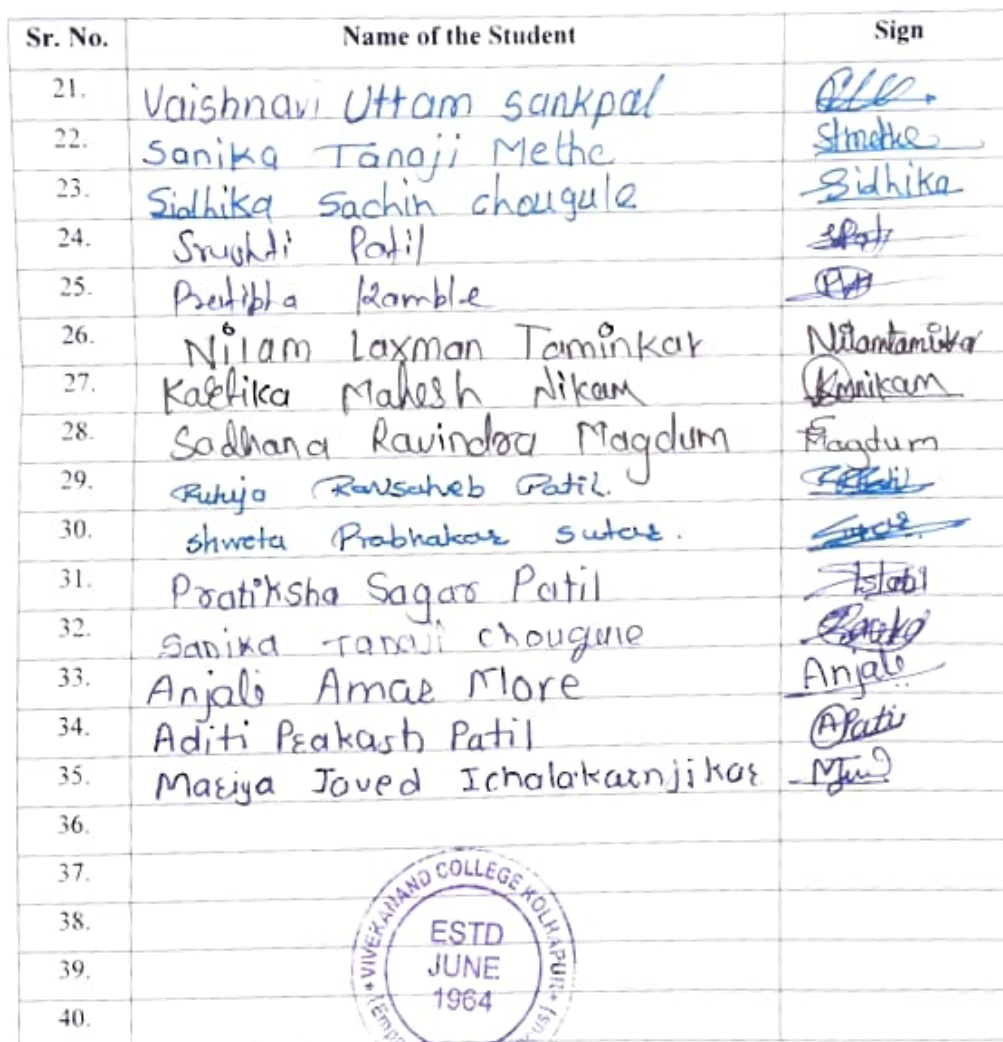 Sr. No. Name of the Student Sign
21. Vaishnavi Uttam Sankpal
22. Sanika Tanaji Methe Stmethe
23. Sidhika Sachin chougule Sidhika
24. Srushti Patil SPati
25. Kamble
26. Nilam Laxman Taminkar Nilamtaminkar
27. Kartika Mahesh Nikam Kmnikam
28. Sadhana Ravindra Magdum Magdum
29. Rutuja Ravsaheb Patil.
30. Shweta Prabhakar Sutar.
31. Pratiksha Sagar Patil
32. Sanika Tanaji chougule
33. Anjali Amar More Anjali
34. Aditi Prakash Patil APati
35. Mariya Javed Ichalakarnjikar
36.
37.
38.
39.
40.
VIVEKANAND COLLEGE KOLHAPUR
ESTD
JUNE
1964